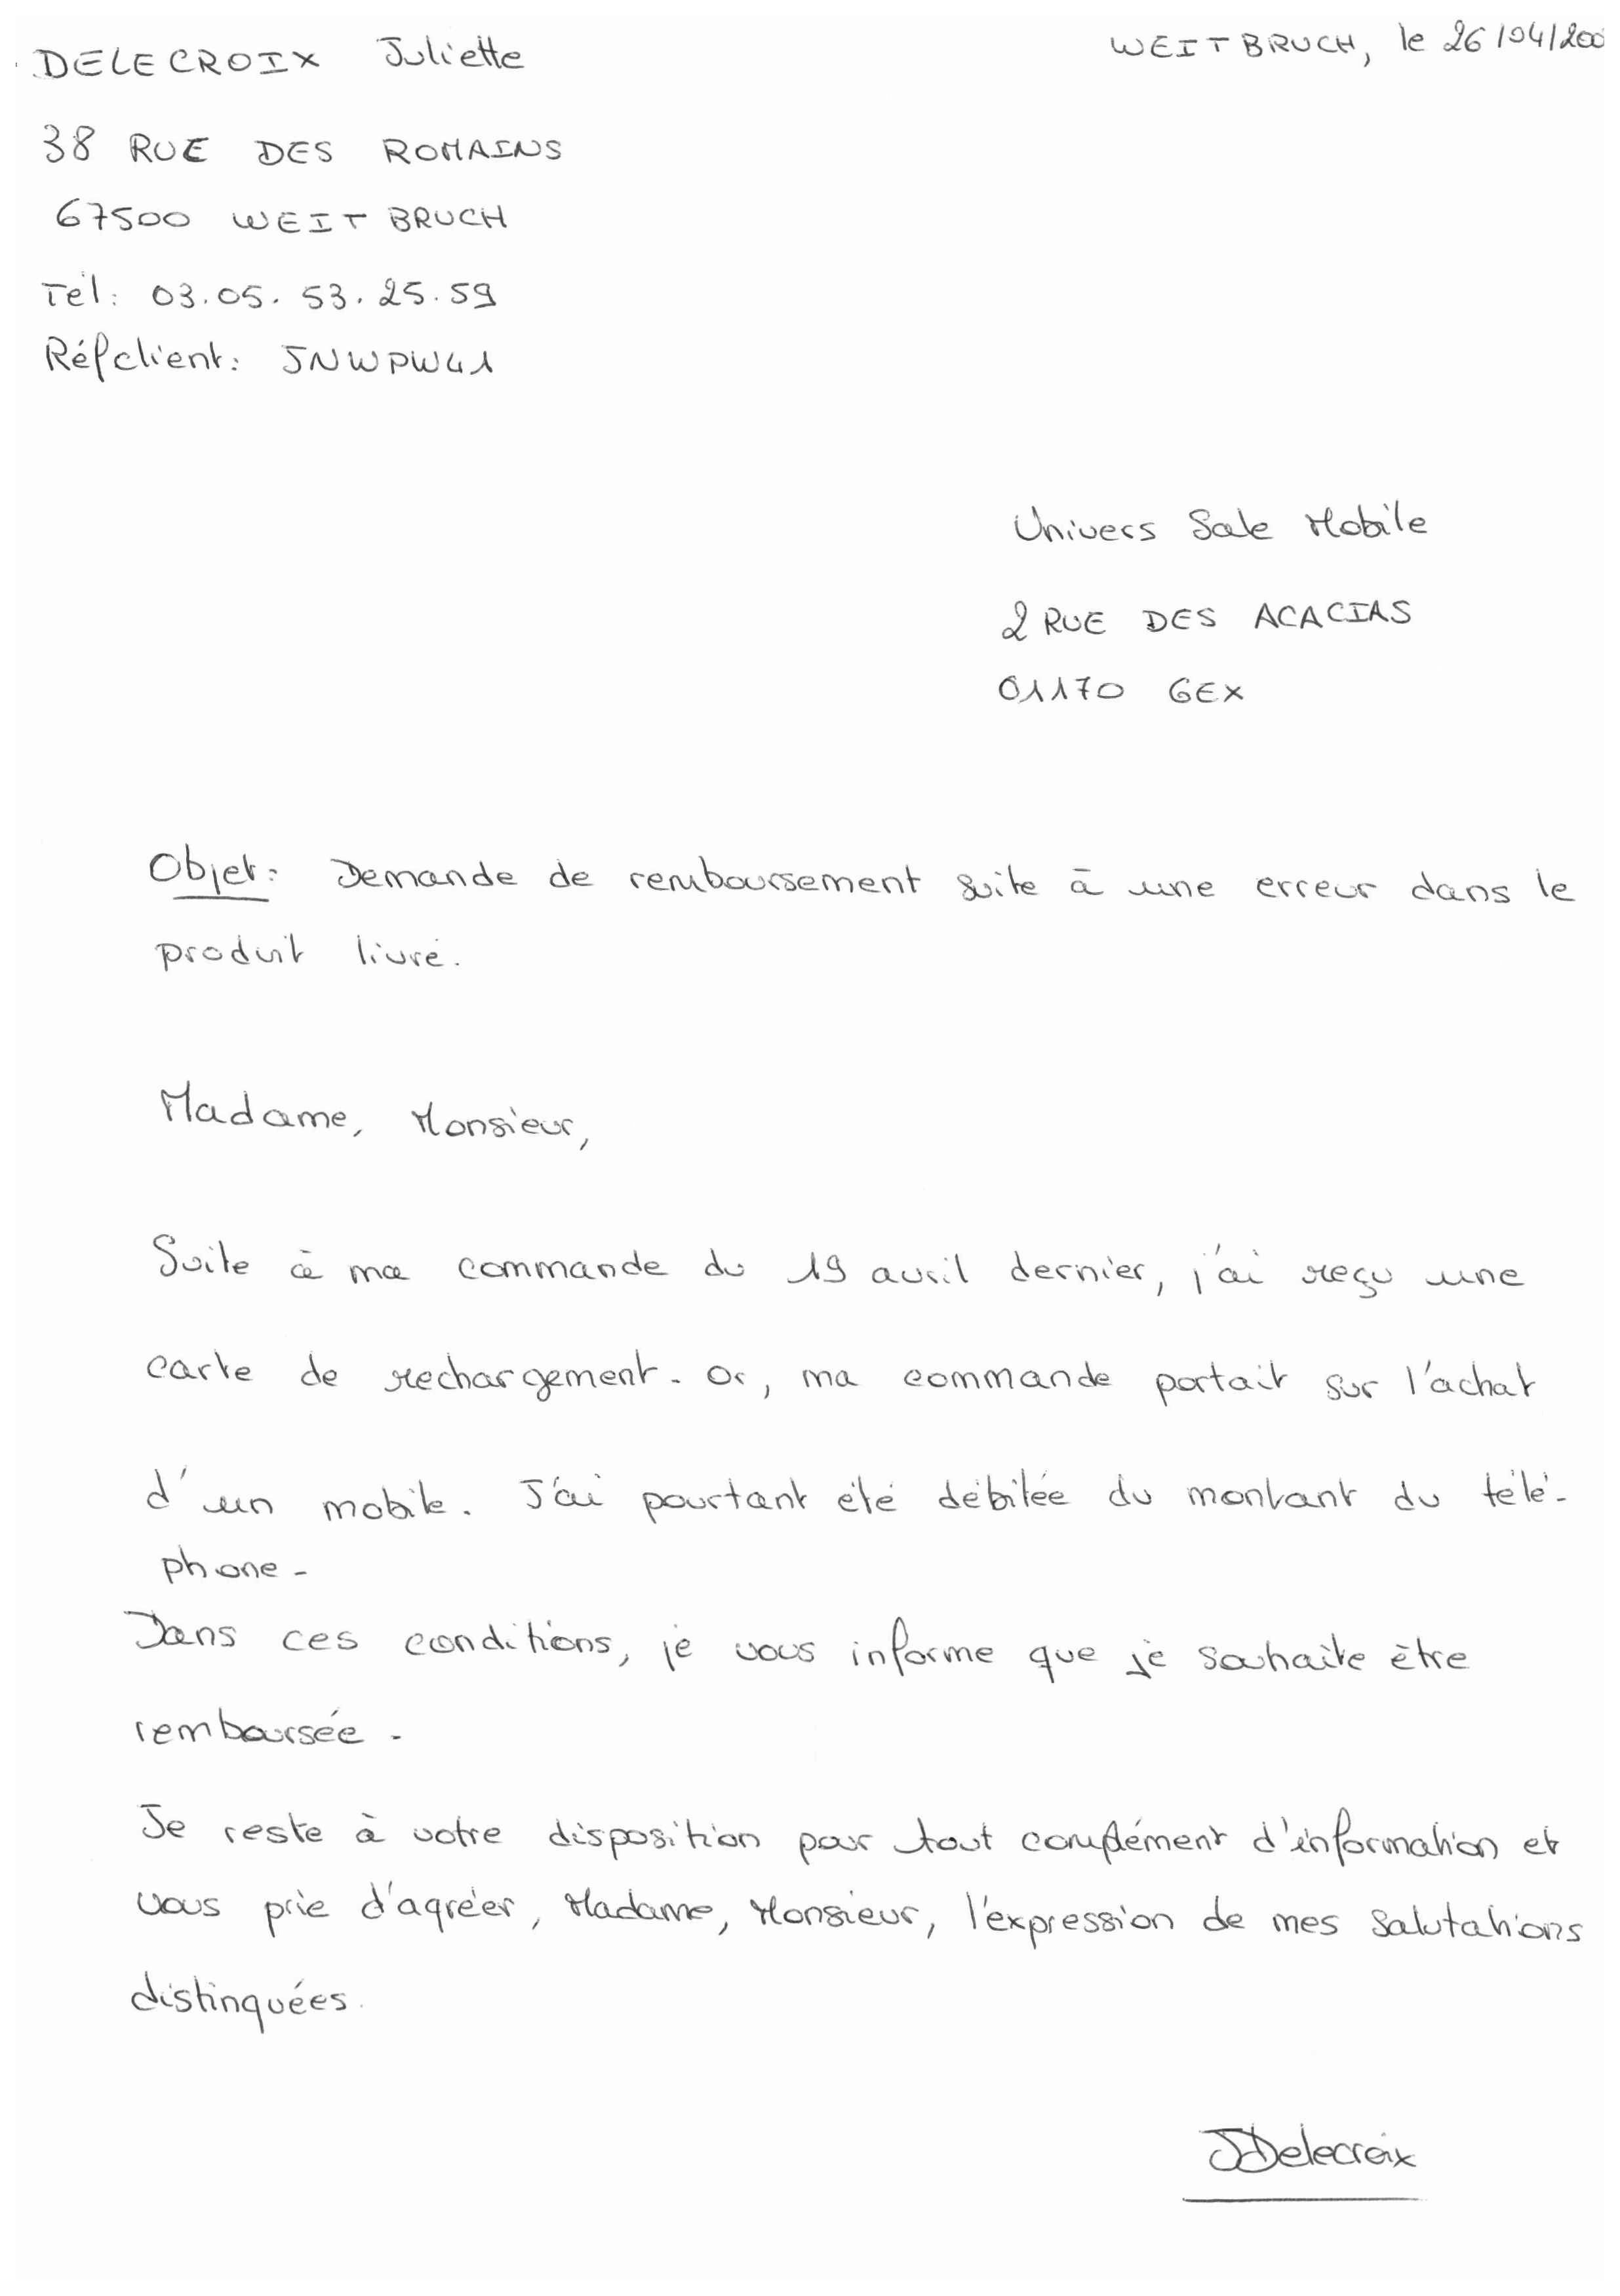 DELECROIX Juliette
WEITBRUCH, le 26/04/200
38 RUE DES ROMAINS
67500 WEITBRUCH
Tél: 03.05.53.25.59
Réf client: JNWPW41
Univers Sale Mobile
2 RUE DES ACACIAS
01170 GEX
Objet: Demande de remboursement suite à une erreur dans le
produit livré.
Madame, Monsieur,
Suite à ma commande du 19 avril dernier, j'ai reçu une
carte de rechargement. Or, ma commande portait sur l'achat
d'un mobile. J'ai pourtant été débitée du montant du télé-
phone.
Dans ces conditions, je vous informe que je souhaite être
remboursée.
Je reste à votre disposition pour tout complément d'information et
vous prie d'agréer, Madame, Monsieur, l'expression de mes salutations
distinguées.
JDelecroix